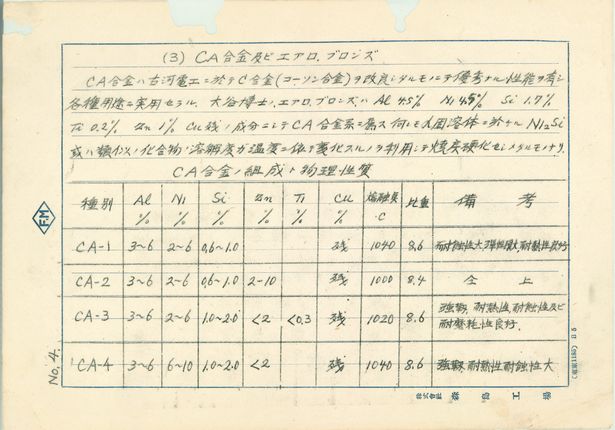 (3) CA合金及ビエアロ.ブロンズ
CA合金ハ古河電工ニ於テC合金(コーソン合金)ヲ改良シタルモノニテ優秀ナル性能ヲ有シ
各種用途ニ実用セラル. 大谷博士,エアロ.ブロンズハ Al 4.5% Ni 4.5% Si 1.7%
Ti 0.2% Zn 1% Cu残ノ成分ニシテCA合金系ニ属ス何レモ 固溶体ニ於ケル Ni₂Si
或ハ類似ノ化合物ノ溶解度ガ温度ニ依リ変化スルノヲ利用シテ焼戻硬化セシメタルモノナリ.
CA合金ノ組成ト物理性質
種別 Al % Ni % Si % Zn % Ti % Cu % 熔融点 °C 比重 備考
CA-1 3~6 2~6 0.6~1.0 残 1040 8.6 耐蝕性大,弾性大,耐熱性良好
CA-2 3~6 2~6 0.6~1.0 2~10 残 1000 8.4 仝上
CA-3 3~6 2~6 1.0~2.0 <2 <0.3 残 1020 8.6 強靱,耐熱性,耐蝕性及ビ
耐磨耗性良好.
CA-4 3~6 6~10 1.0~2.0 <2 残 1040 8.6 強靱,耐熱性耐蝕性大
FM
No. 4.
株式会社 森島工場
B5